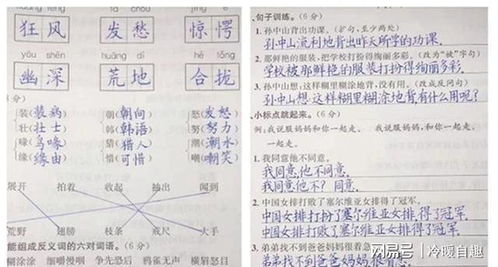 狂风 发愁 惊愕
yōu shēn huāng dì hé lǒng
幽深 荒地 合拢
6分)
装(装病) 朝(朝向) 怒(发怒)
壮(壮士) 韩(韩语) 努(努力)
喙(鸟喙) 猎(猎人) 潮(潮水)
缘(缘由) 惜(可惜) 嘲(嘲笑)
展开 拍着 收起 抽出 闻到
荒野 翅膀 枝条 戒尺 大手
能组成反义词的六对词语。(6分)
涂糊涂 细嚼慢咽 争先恐后 鸦雀无声 横眉怒目
句子训练。(6分)
1. 孙中山背出功课。(扩句,至少两处)
孙中山流利地背出昨天所学的功课.
2. 那鲜艳的服装,把学校打扮得绚丽多彩。(改为“被”字句)
学校被那鲜艳的服装打扮得绚丽多彩.
3. 孙中山想,这样糊里糊涂地背,没有用。(改成反问句)
孙中山想,这样糊里糊涂地背有什么用呢?
小标点跳起来。(6分)
例:我说服妈妈和你一起走。 我说,服妈妈和你一起走。
1. 我同意他不同意。
我同意,他不同意.
我同意他不?同意.
2. 中国女排打败了塞尔维亚女排得了冠军。
中国女排打败了塞尔维亚女排,得了冠军.
中国女排打败了,塞尔维亚女排得了冠军.
3. 弟弟找不到爸爸妈妈很着急。
弟弟找不到爸爸,妈妈很着急.
网易号 | 冷暖自趣